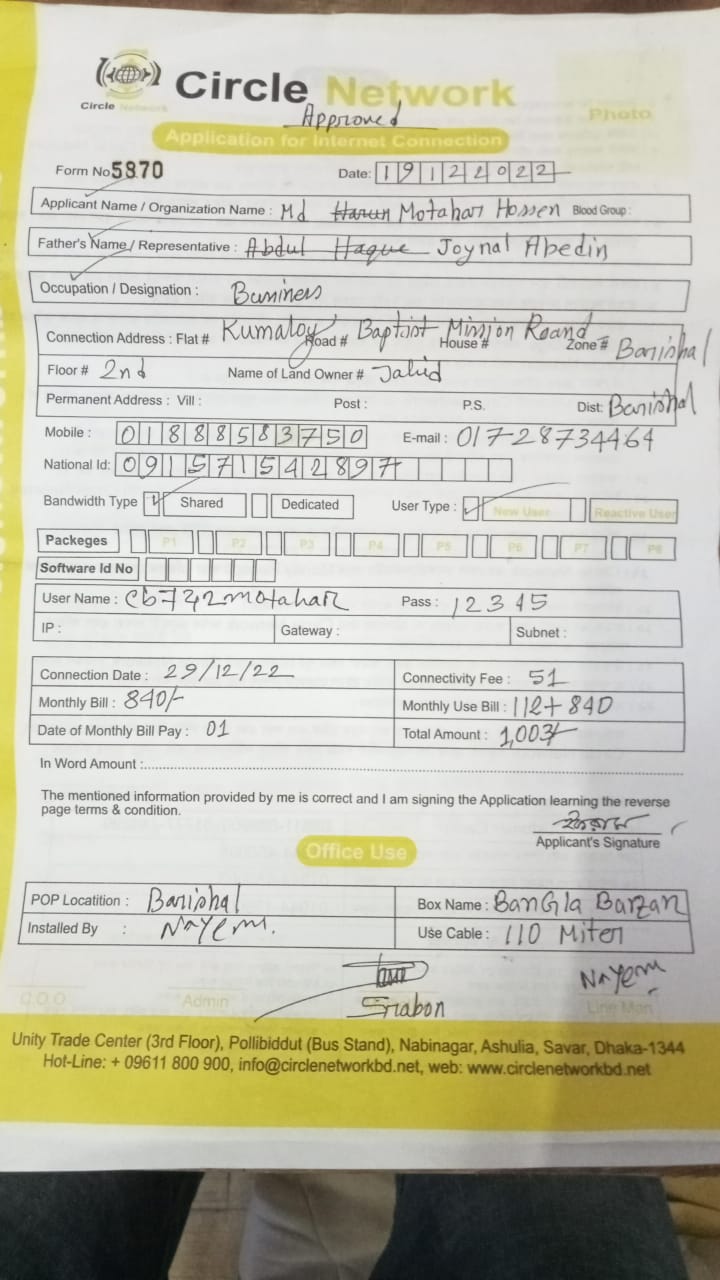 Circle Network
Circle Network
Approved
Photo
Application for Internet Connection
Form No 5870
Date: 19122022
Applicant Name / Organization Name : Md Harun Motahar Hossen Blood Group :
Father's Name / Representative : Abdul Haque Joynal Abedin
Occupation / Designation : Business
Connection Address : Flat # Kumaloy Road # Baptist Mission Roand House # Zone # Barishal
Floor # 2nd Name of Land Owner # Jahid
Permanent Address : Vill : Post : P.S. Dist: Barishal
Mobile : 01888583750 E-mail : 01728734464
National Id: 091571542897
Bandwidth Type Shared Dedicated User Type : New User Reactive User
Packeges P1 P2 P3 P4 P5 P6 P7 P8
Software Id No
User Name : cb742motahar Pass : 12345
IP : Gateway : Subnet :
Connection Date : 29/12/22 Connectivity Fee : 51
Monthly Bill : 840/- Monthly Use Bill : 112+840
Date of Monthly Bill Pay : 01 Total Amount : 1,003/-
In Word Amount :
The mentioned information provided by me is correct and I am signing the Application learning the reverse
page terms & condition.
Applicant's Signature
Office Use
POP Locatition : Barishal Box Name : BanGla Barzar
Installed By : Nayem. Use Cable : 110 Miter
Nayem
Sriabon
C.O.O Admin Line Man
Unity Trade Center (3rd Floor), Pollibiddut (Bus Stand), Nabinagar, Ashulia, Savar, Dhaka-1344
Hot-Line: + 09611 800 900, info@circlenetworkbd.net, web: www.circlenetworkbd.net